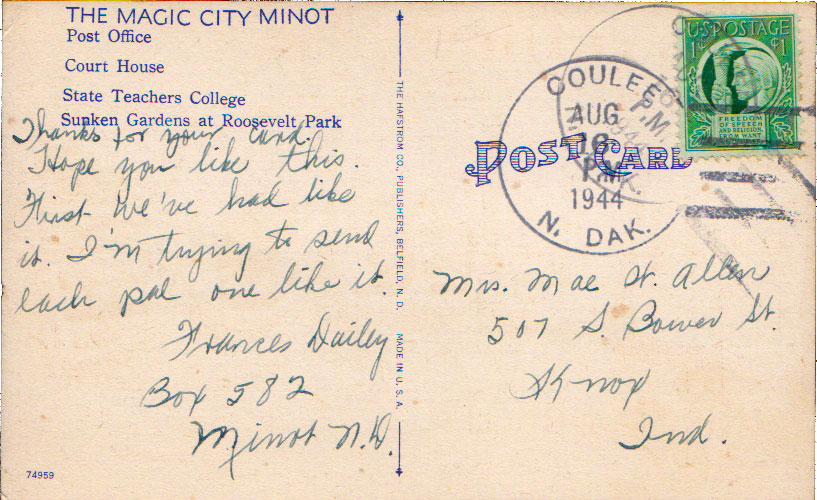 THE MAGIC CITY MINOT
Post Office
Court House
State Teachers College
Sunken Gardens at Roosevelt Park
Thanks for your card.
Hope you like this.
First we've had like
it. I'm trying to send
each pal one like it.
Frances Dailey
Box 582
Minot N.D.
74959
THE HAFSTROM CO., PUBLISHERS, BELFIELD, N. D. MADE IN U. S. A.
POST CARD
COULEE
AUG
16
P.M.
1944
N. DAK.
U·S·POSTAGE
1¢ ¢1
FREEDOM
OF SPEECH
AND RELIGION,
FROM WANT
Mrs. Mae H. Allen
507 S. Bower St.
Knox
Ind.